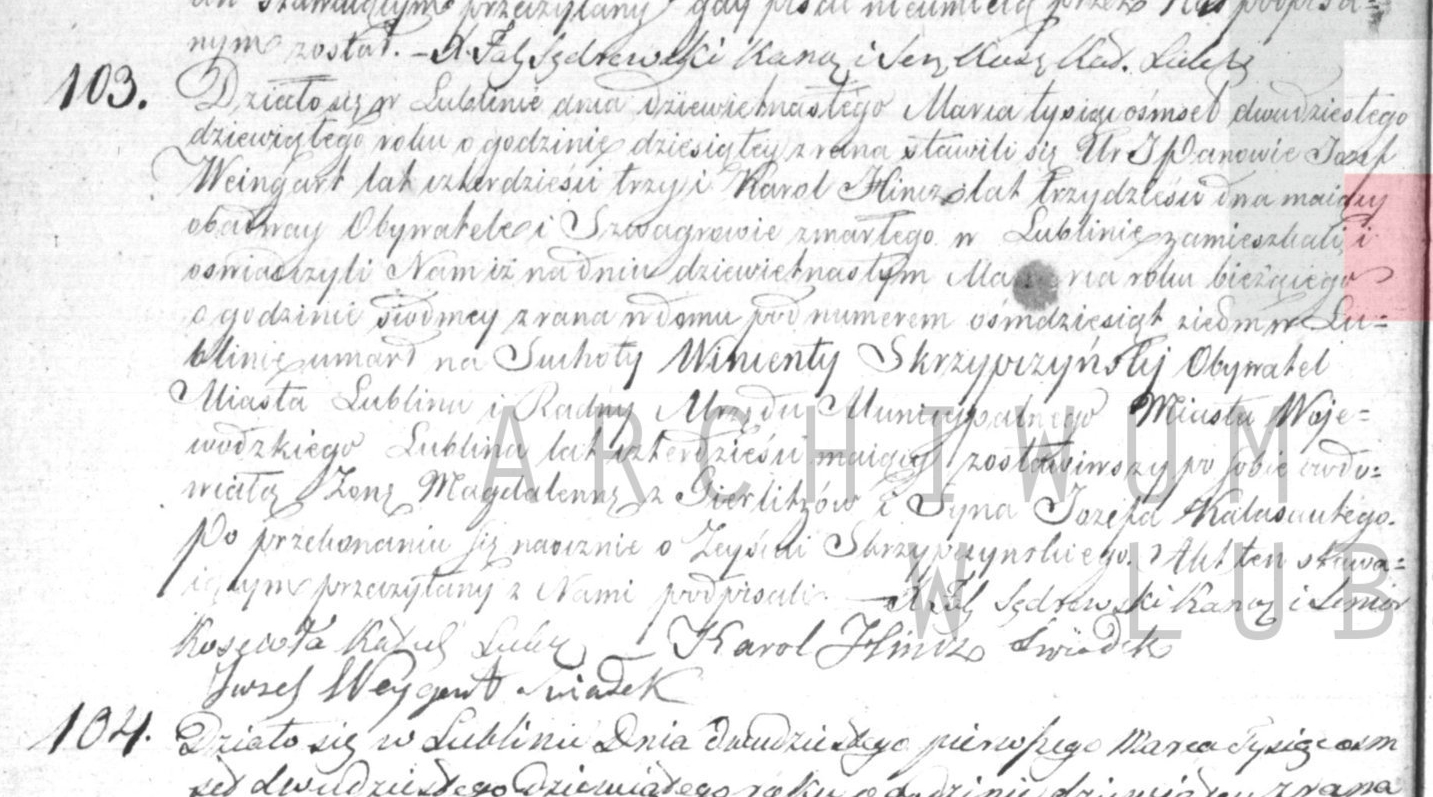 stawaiącym przeczytany gdy pisać nieumieią przez Nas podpisa=
nym został. – X Fab Sędrowski Kano: i Sen: Kość: Kad. Lubels
103. Działo się w Lublinie dnia dziewietnastego Marca tysiąc ośmset dwudziestego
dziewiątego roku o godzinie dziesiątey z rana stawili się Ur JPanowie Jozef
Weingart lat czterdzieści trzy i Karol Hincz lat trzydzieści dwa maiący
obadway Obywatele i Szwagrowie zmarłego w Lublinie zamieszkali i
oświadczyli Nam iż na dniu dziewietnastym Marca roku bieżącego
o godzinie siodmey z rana w domu pod numerem ośmdziesiąt siedm w Lu=
blinie umarł na Suchoty Wincenty Skrzypczyński Obywatel
Miasta Lublina i Radny Urzędu Municypalnego Miasta Woje=
wodzkiego Lublina lat czterdzieści maiący, zostawiwszy po sobie owdo=
wiałą Żonę Magdalennę z Gierlitzów i Syna Jozefa Kalasantego.
Po przekonaniu się naocznie o Zeyściu Skrzypczynskiego. Akt ten stawa=
iącym przeczytany z Nami podpisali – X Fab Sędrowski Kano: i Senior
Koscioła Kated Lube – Karol Hincz Swiadek
Jozef Weygart Swiadek
104. Działo się w Lublinie Dnia dwudziestego pierwszego Marca Tysiąc osm
set dwudziestego dziewiątego roku o godzinie dziewiątey z rana
ARCHIWUM
W LUB